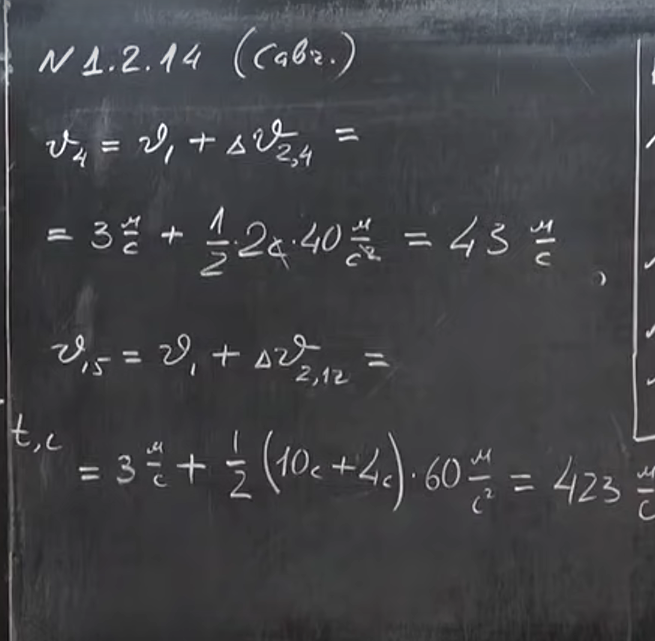 N 1.2.14 (Савч.)
v₄ = v₁ + Δv₂,₄ =
= 3 м/с + 1/2 · 2с · 40 м/с² = 43 м/с ,
v₁₅ = v₁ + Δv₂,₁₂ =
t, с
= 3 м/с + 1/2 (10с + 4с) · 60 м/с² = 423 м/с